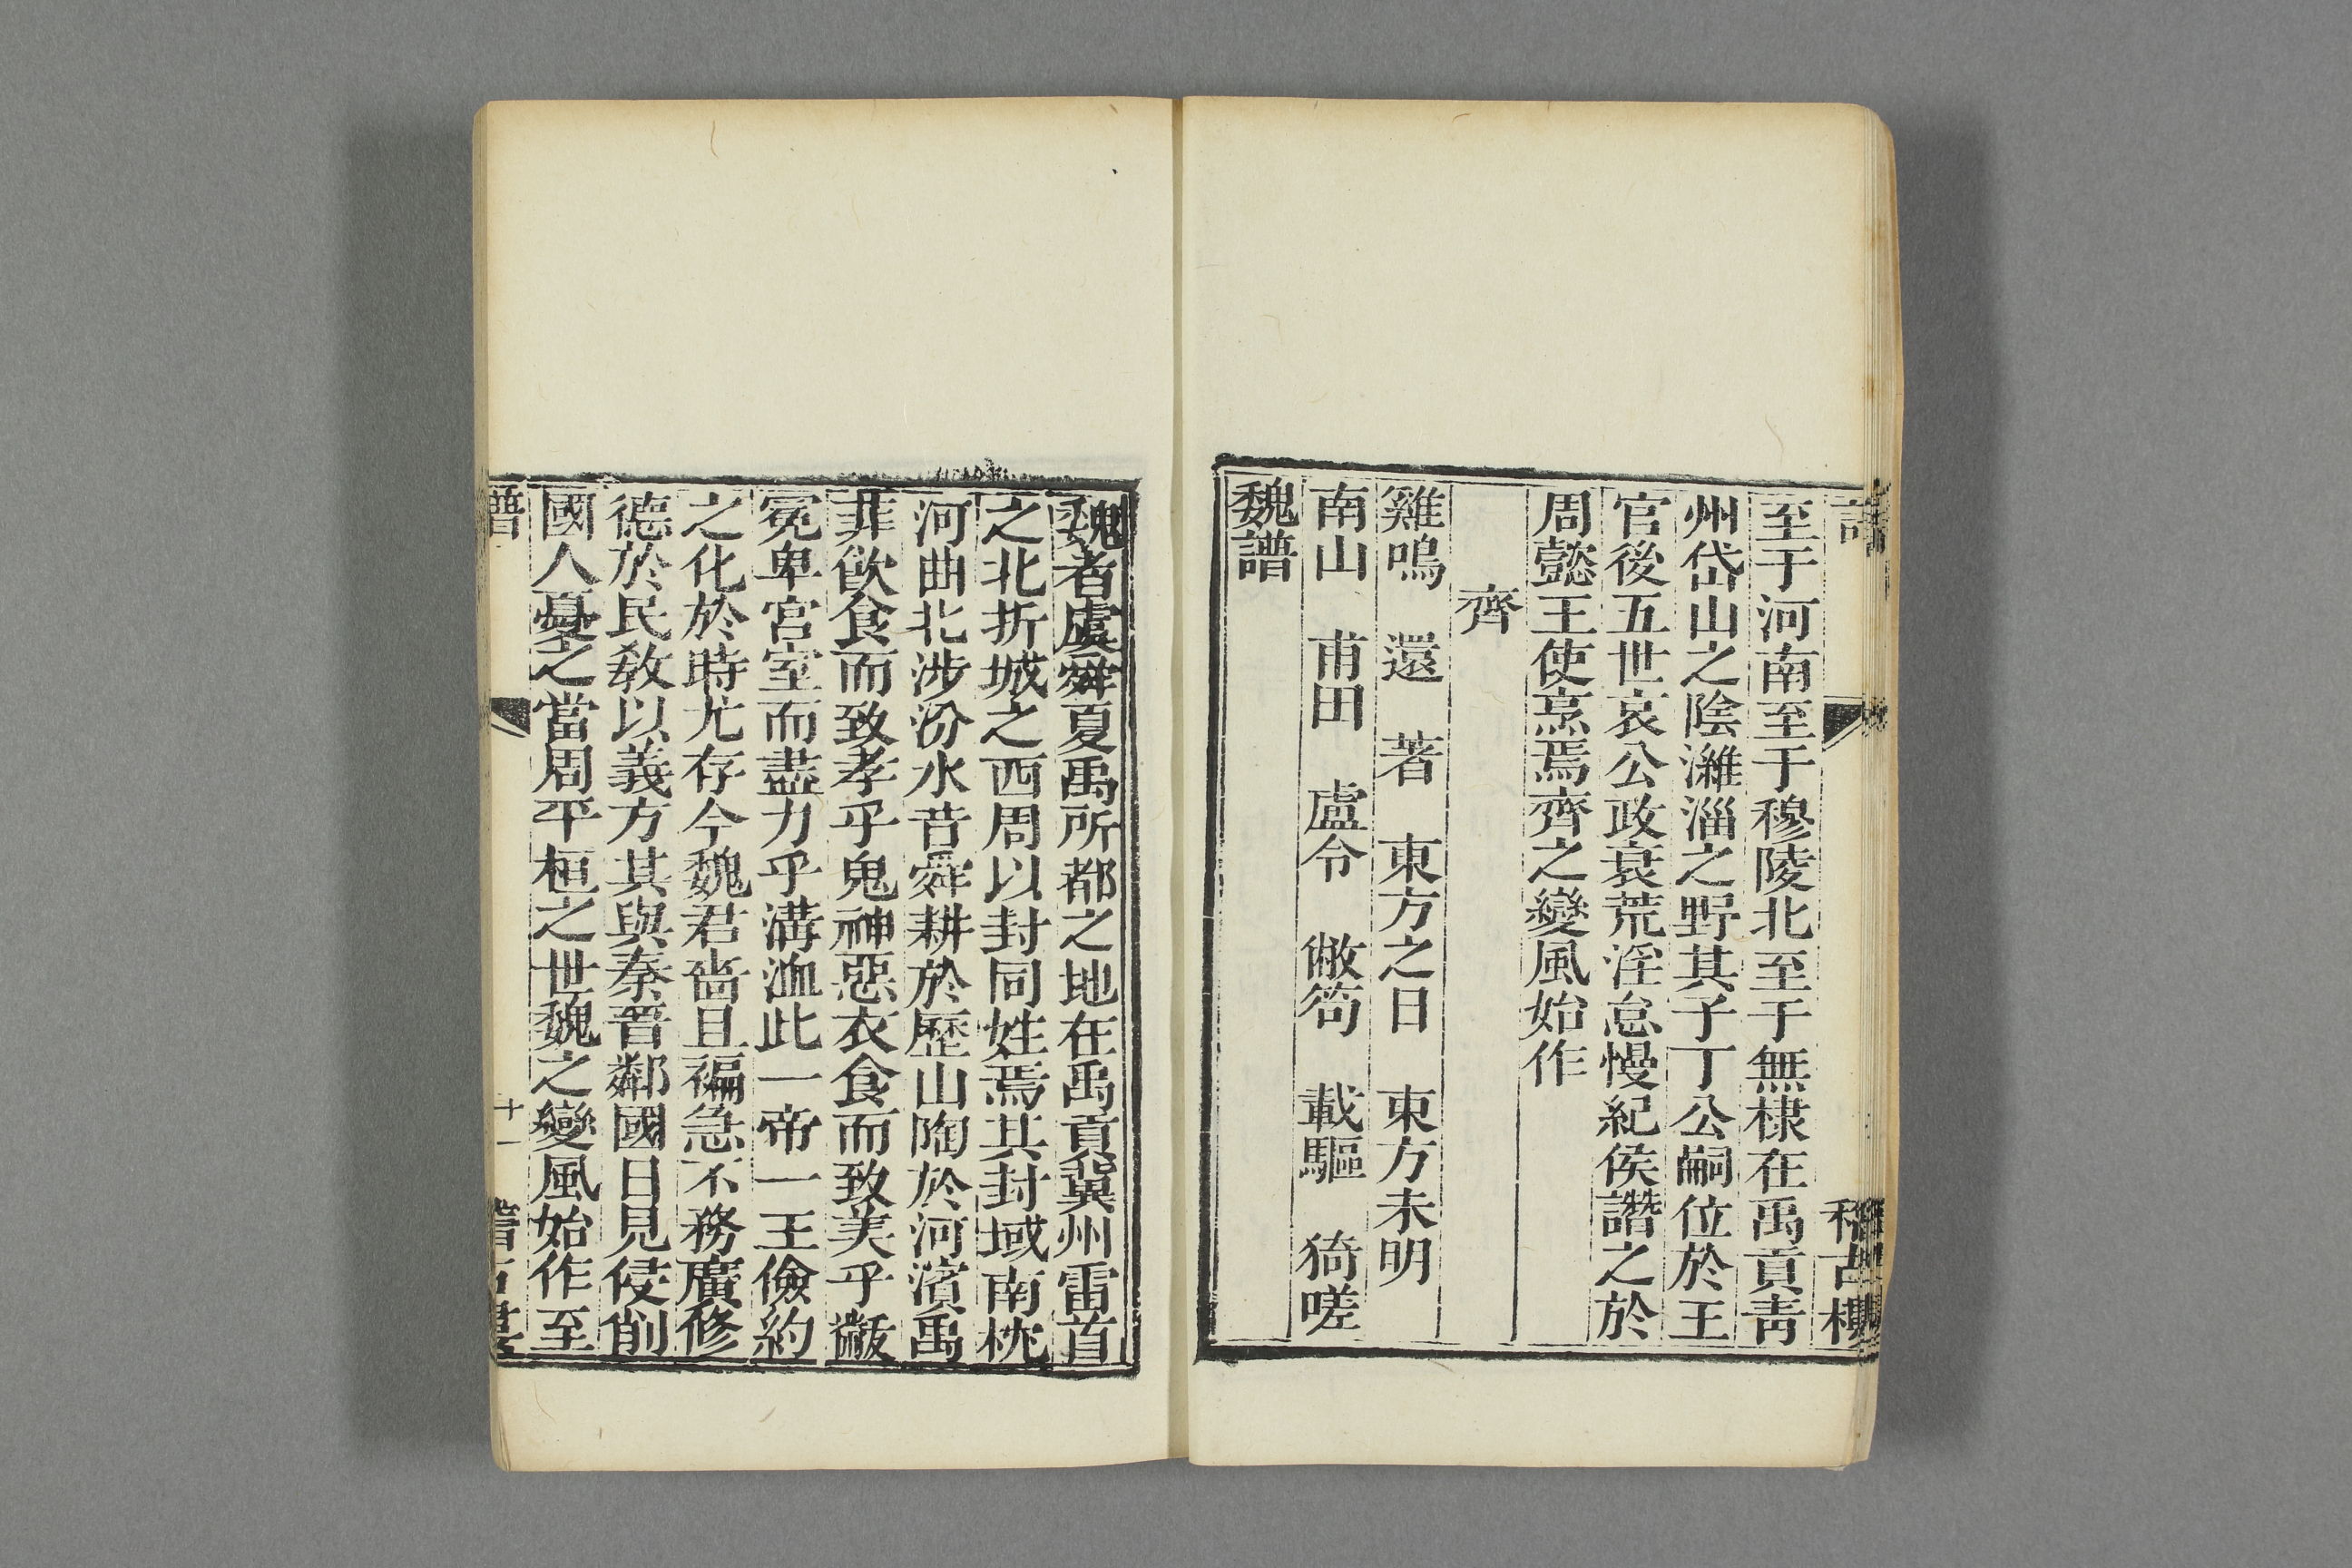 譜 稽古樓
至于河南至于穆陵北至于無棣在禹貢靑
州岱山之陰濰淄之野其子丁公嗣位於王
官後五世哀公政衰荒淫怠慢紀侯譖之於
周懿王使烹焉齊之變風始作
齊
雞鳴 還 著 東方之日 東方未明
南山 甫田 盧令 敝笱 載驅 猗嗟
魏譜
魏者虞舜夏禹所都之地在禹貢冀州雷首
之北折城之西周以封同姓焉其封域南枕
河曲北涉汾水昔舜耕於歷山陶於河濱禹
菲飮食而致孝乎鬼神惡衣食而致美乎黻
冕卑宮室而盡力乎溝洫此一帝一王儉約
之化於時尤存今魏君嗇且褊急不務廣修
德於民敎以義方其與秦晉鄰國日見侵削
國人憂之當周平桓之世魏之變風始作至
譜 十一 稽古樓